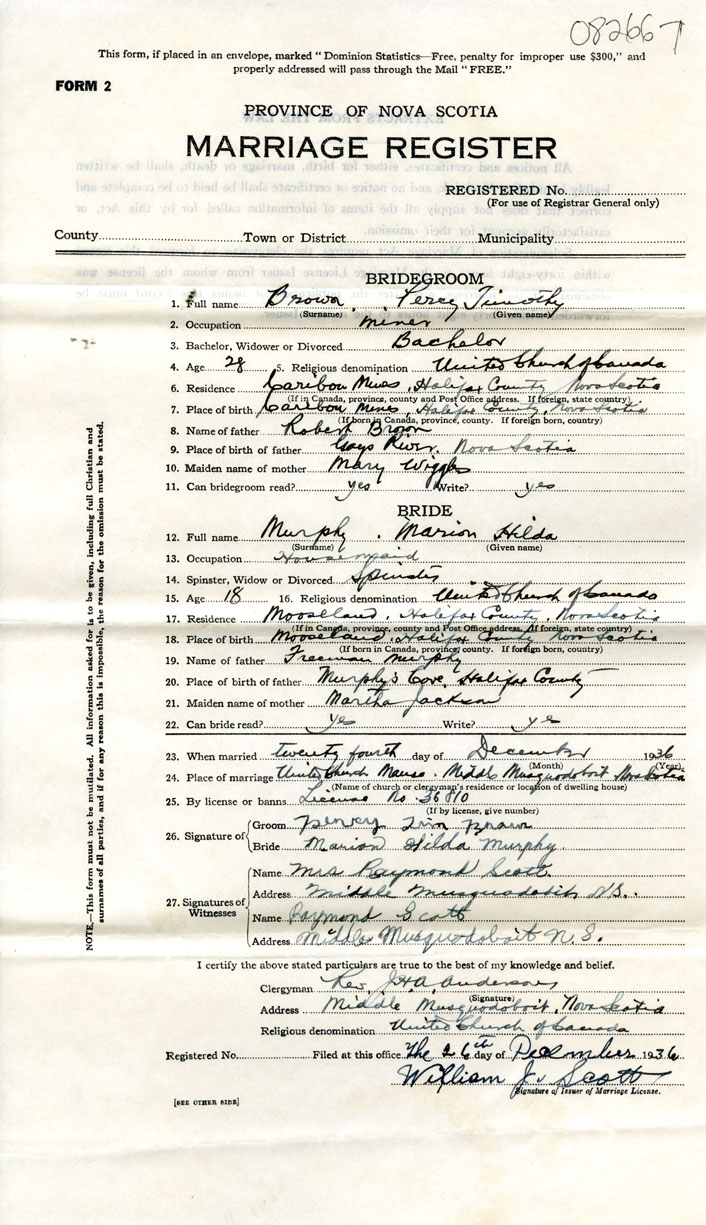 082667
This form, if placed in an envelope, marked "Dominion Statistics—Free, penalty for improper use $300," and
properly addressed will pass through the Mail "FREE."
FORM 2
PROVINCE OF NOVA SCOTIA
MARRIAGE REGISTER
REGISTERED No.
(For use of Registrar General only)
County Town or District Municipality
BRIDEGROOM
1. Full name Brown, Percy Timothy
(Surname) (Given name)
2. Occupation miner
3. Bachelor, Widower or Divorced Bachelor
4. Age 28 5. Religious denomination United Church of Canada
6. Residence Caribou Mines, Halifax County Nova Scotia
(If in Canada, province, county and Post Office address. If foreign, state country)
7. Place of birth Caribou Mines, Halifax County, Nova Scotia
(If born in Canada, province, county. If foreign born, country)
8. Name of father Robert Brown
9. Place of birth of father Gays River, Nova Scotia
10. Maiden name of mother Mary Wiggles
11. Can bridegroom read? yes Write? yes
BRIDE
12. Full name Murphy, Marion Hilda
(Surname) (Given name)
13. Occupation Housemaid
14. Spinster, Widow or Divorced Spinster
15. Age 18 16. Religious denomination United Church of Canada
17. Residence Mooseland, Halifax County, Nova Scotia
(If in Canada, province, county and Post Office address. If foreign, state country)
18. Place of birth Mooseland, Halifax County Nova Scotia
(If born in Canada, province, county. If foreign born, country)
19. Name of father Freeman Murphy
20. Place of birth of father Murphy's Cove, Halifax County
21. Maiden name of mother Martha Jackson
22. Can bride read? yes Write? yes
23. When married twenty fourth day of December 1936
(Month) (Year)
24. Place of marriage United Church Manse, Middle Musquodoboit Nova Scotia
(Name of church or clergyman's residence or location of dwelling house)
25. By license or banns License No 36810
(If by license, give number)
26. Signature of Groom Tim Brown
Bride Marion Hilda Murphy
27. Signatures of Witnesses Name Mrs Raymond Scott
Address Middle Musquodoboit, N.S.
Name Raymond Scott
Address Middle Musquodoboit N.S.
I certify the above stated particulars are true to the best of my knowledge and belief.
Clergyman Rev. J.H.A. Anderson
(Signature)
Address Middle Musquodoboit, Nova Scotia
Religious denomination United Church of Canada
Registered No. Filed at this office The 26th day of December 1936
William J. Scott
Signature of Issuer of Marriage License.
[SEE OTHER SIDE]
NOTE.—This form must not be mutilated. All information asked for is to be given, including full Christian and
surnames of all parties, and if for any reason this is impossible, the reason for the omission must be stated.